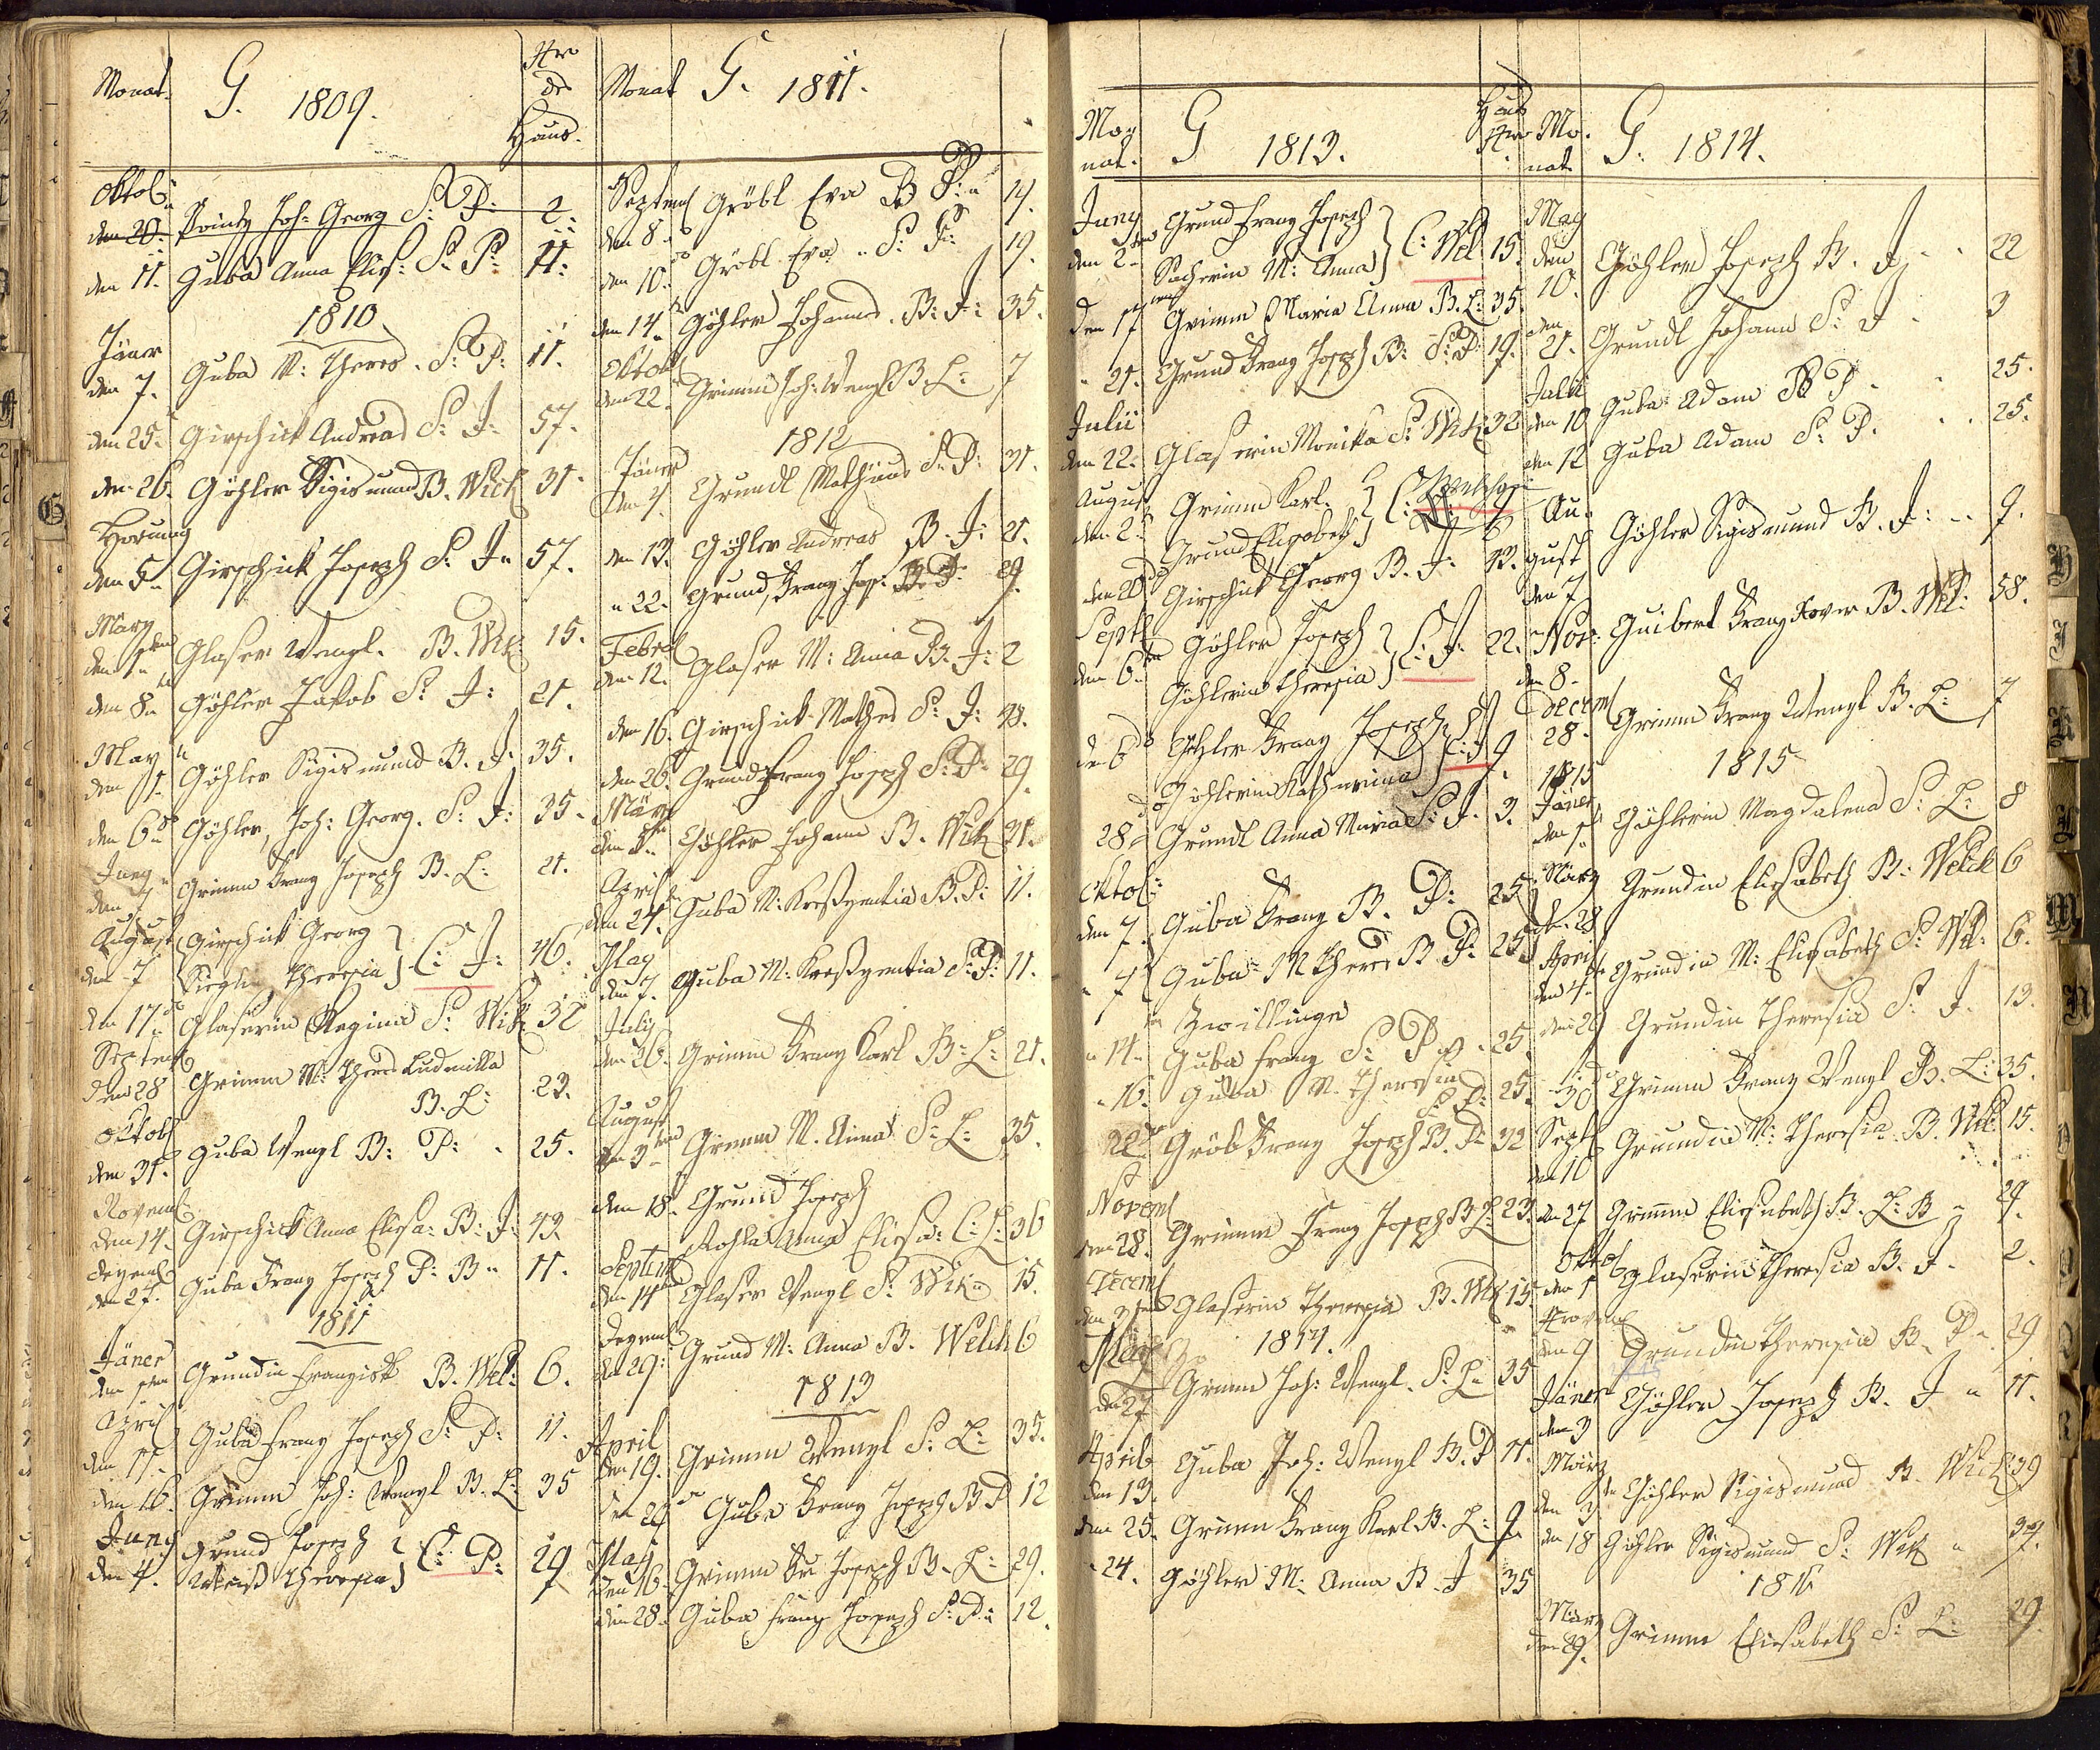 Monat. G. 1809. Nro
des
Haus.
Oktob:
den 20. Printz Joh: Georg S: P: 2.
den 11. Guba Anna Elis: S: P: 11:
1810
Jäner
den 7. Guba M: Theres. S: P: 11.
den 25. Girschick Andreas S: J: 57.
den 26. Göhler Sigismund B. Wick 31.
Hornung
den 5. Girschick Joseph S. J. 57.
März
den 1ten Glaser Wenzl. B. Wik 15.
den 8. Göhler Jakob S: J: 21.
May
den 1. Göhler Sigismund B. J. 35.
den 6. Göhler, Joh: Georg. S: J: 35.
Juny
den 7 Grimm Franz Joseph B. L: 21.
August Girschick Georg
den 7 Theresia C: J: 46.
den 17. Glaserin Regina S: Wik 32
Septemb
den 28 Grimm M: Theres Ludmilla
B. L: 23.
Oktob
den 31. Guba Wenzl B: P: 25.
Novemb
den 14. Girschick Anna Elisa: B: J: 43.
Dezemb
den 27. Guba Franz Joseph P: B. 11.
1811
Jäner
den 1ten Grundin Franziska B. Wel: 6.
April
den 11. Guba Franz Joseph S: P: 11.
den 16. Grimm Joh: Wenzl B. L: 35
Juny Grund Joseph
den 4. Weiß Theresia C: P: 29
Monat G. 1811.
Septemb Gröbl Eva B P: 14.
den 8.
den 10. Gröbl Eva S: P: 19.
den 14. Göhler Johannes. B: J: 35.
Oktob
den 22. Grimm Joh: Wenzl B L: 7
1812
Jäner
den 4. Grundl Mathias S: P: 31.
den 13. Göhler Andreas B. J: 21.
22. Grund, Franz Jos: B. P: 29.
Febr
den 12. Glaser M: Anna B. J: 2
den 16. Girschick Mathes S: J: 48.
den 26. Grund Franz Joseph S: P: 29.
März
den Göhler Johann B. Wik 31.
April
den 24. Guba M: Kreßzentia B. P: 11.
May
den 7. Guba M: Kreßzentia S: P: 11.
July
den 26. Grimm Franz Karl B: L: 21.
August
den 3ten Grimm M. Anna S: L: 35.
den 18. Grund Joseph
Anna Elisa: C: L: 36
Septemb
den 14 Glaser Wenzl S: Wik 15.
Dezemb
den 29: Grund M: Anna B. Welck 6
1813
April
den 19. Grimm Wenzl S: L: 35.
den 20 Guba Franz Joseph B P 12
May
den 16. Grimm Fr: Joseph B. L: 29.
den 28. Guba Franz Joseph S: P: 12.
Mo-
nat. G 1813. Haus
Nro
Juny Grund Franz Joseph
den 2. M: Anna C: Wel 15.
den 17 Grimm Maria Anna B. L: 35.
21. Grund Franz Joseph B: P: 19.
Julii
den 22. Glaserin Monika S: Wik 32
August Grimm Karl.
den 2. Grund Elisabeth 6
den 20 Girschick Georg B. J: 43.
Sept
den 6. Göhler Joseph
Göhlerin Theresia C: J: 22.
de 6 Göhler Franz Joseph
Göhlerin Katharina C: J 9.
28. Grundl Anna Maria S: J. 3.
Oktob:
den 7. Guba Franz B. P: 25
7 Guba M Theres B. P: 25
Zwillinge
14. Guba Franz S: P 25.
16. Guba M. Theresia
S: P: 25.
22 Gröb Franz Joseph B. P: 32
Novemb
den 28. Grimm Franz Joseph B L: 23.
Decemb
den 31 Glaserin Theresia B. Wik 15.
1814.
März
den 27 Grimm Joh: Wenzl. S: L: 35
April
den 13. Guba Joh: Wenzl B. P 11.
den 25. Grimm Franz Karl B. L: 9.
24. Göhler M: Anna B. J 35
Mo.
nat G: 1814.
May
den
10. Göhler Joseph B. J 22
den
21. Grundl Johann S: J 3
Julii
den 10 Guba Adam B P 25.
den 12 Guba Adam S: P. 25.
Au-
gust Göhler Sigismund B. J: 9.
den 7
Nov: Guibert Franz Xaver B. Wel: 58.
den 8.
Decemb
28. Grimm Franz Wenzl B. L: 7
1815 1815
Jäner
den 1 Göhlerin Magdalena S: L: 8
März
den 28 Grundin Eliesabeth B: Welck 6
April
den 4. Grundin M: Elisabeth S: Wel: 6.
den 20 Grundin Theresia S: J. 13.
30 Grimm Franz Wenzl B. L: 35.
Sept
den 10 Grundin M: Theresia B. Wel: 15.
den 27 Grimm Eliesabeth B. L: B 29.
Oktob
den 1 Glaserin Theresia B. J. 2.
Novemb
den 9 Grundin Theresia B. P. 29
Jäner
den 3 Göhler Joseph B. J 11.
März
den 3 Göhler Sigismund B. Wick 39
den 18 Göhler Sigismund S: Wik 39.
1816
März
den 29. Grimm Eliesabeth S: L: 29.
G